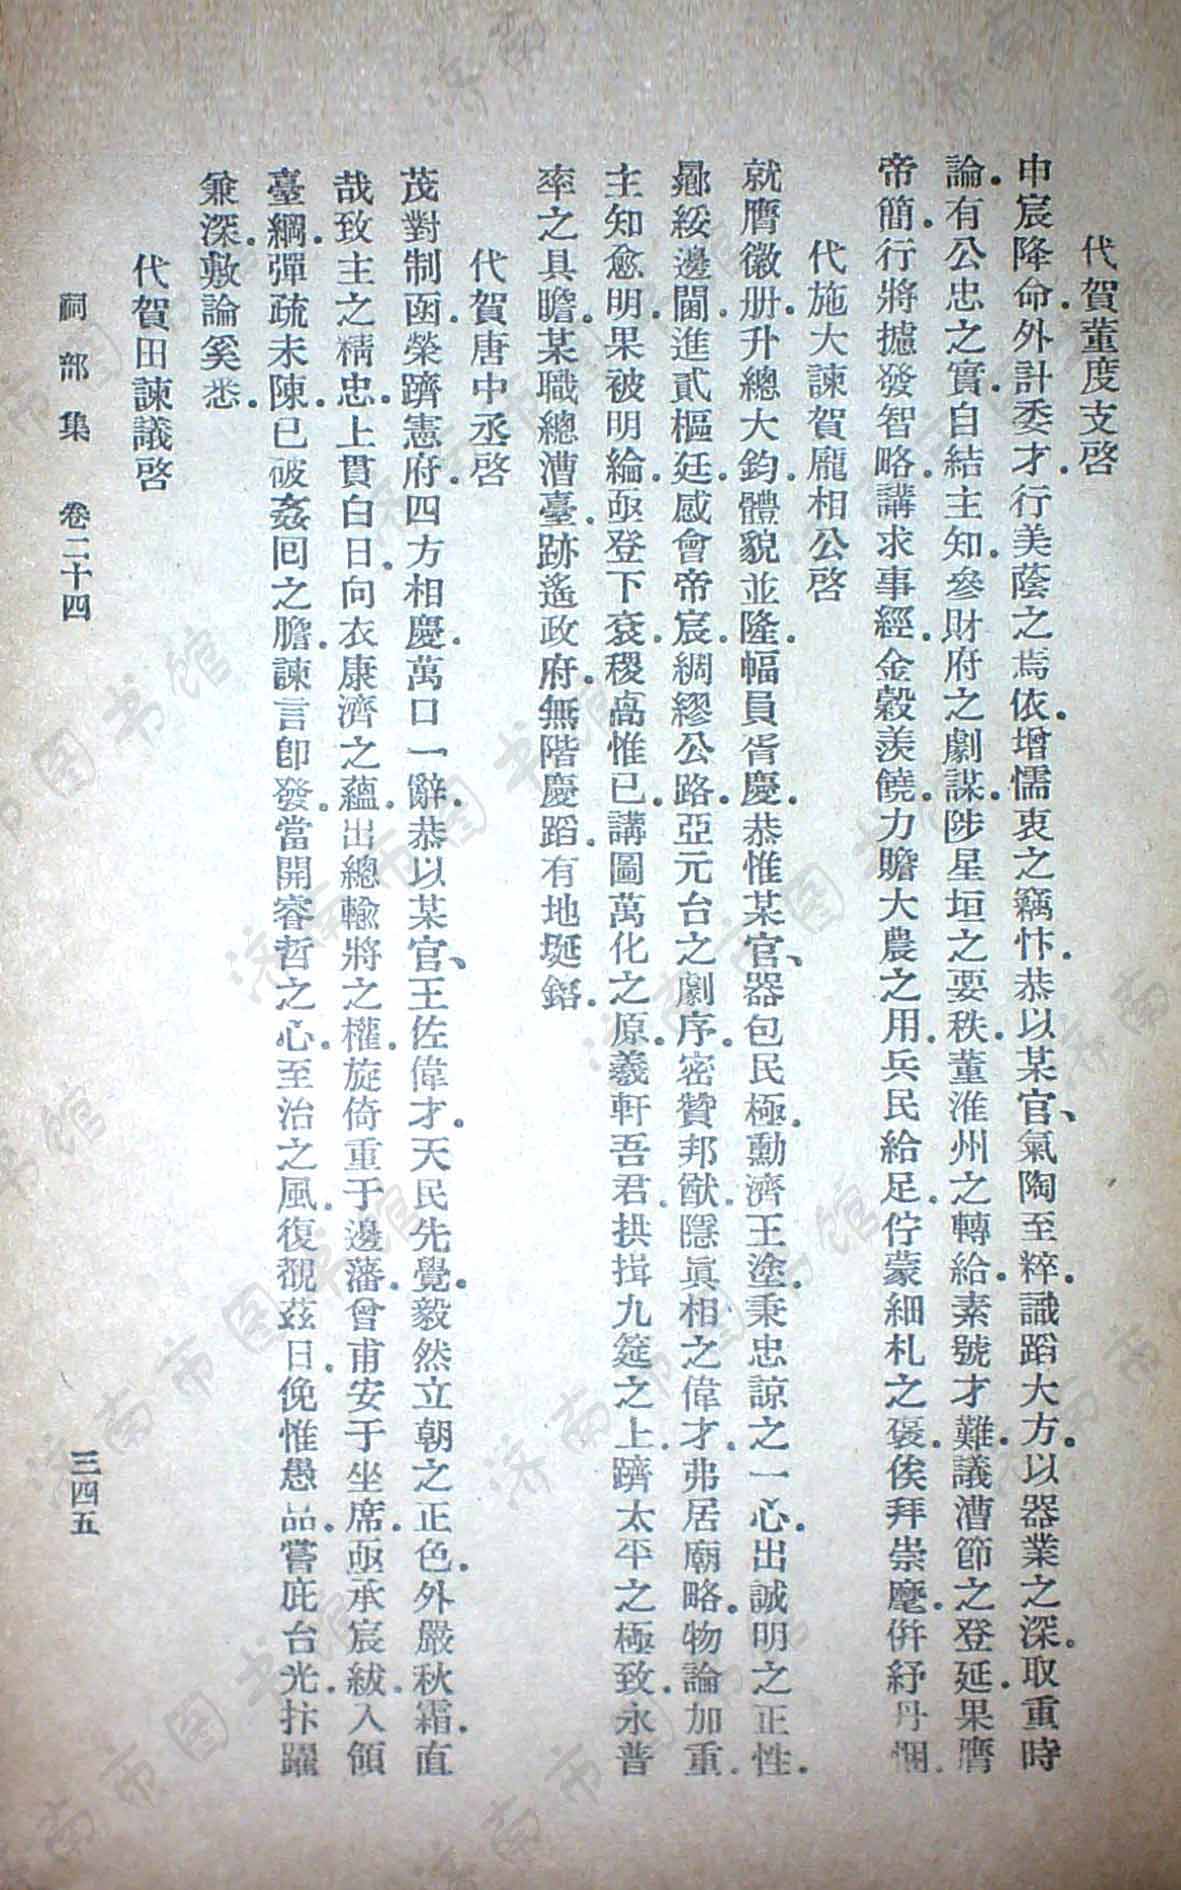 代賀董度支啓
申宸降命。外計委才。行美蔭之焉依。增懦衷之竊忭。恭以某官、氣陶至粹。識蹈大方。以器業之深。取重時
論。有公忠之實。自結主知。參財府之劇謀。陟星垣之要秩。董淮州之轉給。素號才難。議漕節之登延。果膺
帝簡。行將攄發智略。講求事經。金穀羨饒。力贍大農之用。兵民給足。佇蒙細札之褒。俟拜崇麾。倂紓丹悃。
代施大諫賀龐相公啓
就膺徽册。升總大鈞。體貌並隆。幅員胥慶。恭惟某官、器包民極。勳濟王塗。秉忠諒之一心。出誠明之正性。
曏綏邊閫。進貳樞廷。感會帝宸。綢繆公路。亞元台之劇序。密贊邦猷。隱眞相之偉才。弗居廟略。物論加重。
主知愈明。果被明綸。亟登下袞。稷卨惟已。講圖萬化之原。羲軒吾君。拱揖九筵之上。躋太平之極致。永普
率之具瞻。某職總漕臺。跡遙政府。無階慶蹈。有地埏鎔。
代賀唐中丞啓
茂對制函。榮躋憲府。四方相慶。萬口一辭。恭以某官、王佐偉才。天民先覺。毅然立朝之正色。外嚴秋霜。直
哉致主之精忠。上貫白日。向衣康濟之蘊。出總輸將之權。旋倚重于邊藩。曾甫安于坐席。亟承宸紱。入領
臺綱。彈疏未陳。已破姦回之膽。諫言卽發。當開睿哲之心。至治之風。復覩茲日。俛惟愚品。嘗庇台光。抃躍
兼深。敷論奚悉。
代賀田諫議啓
祠部集 卷二十四
三四五